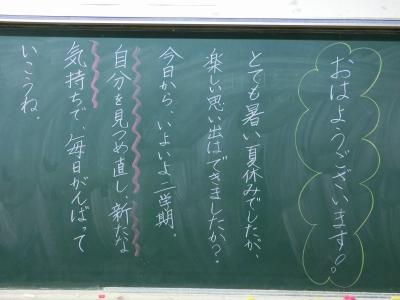 おはようございます。
とても暑い夏休みでしたが、
楽しい思い出はできましたか？
今日から、いよいよ二学期。
自分を見つめ直し、新たな
気持ちで、毎日がんばって
いこうね。